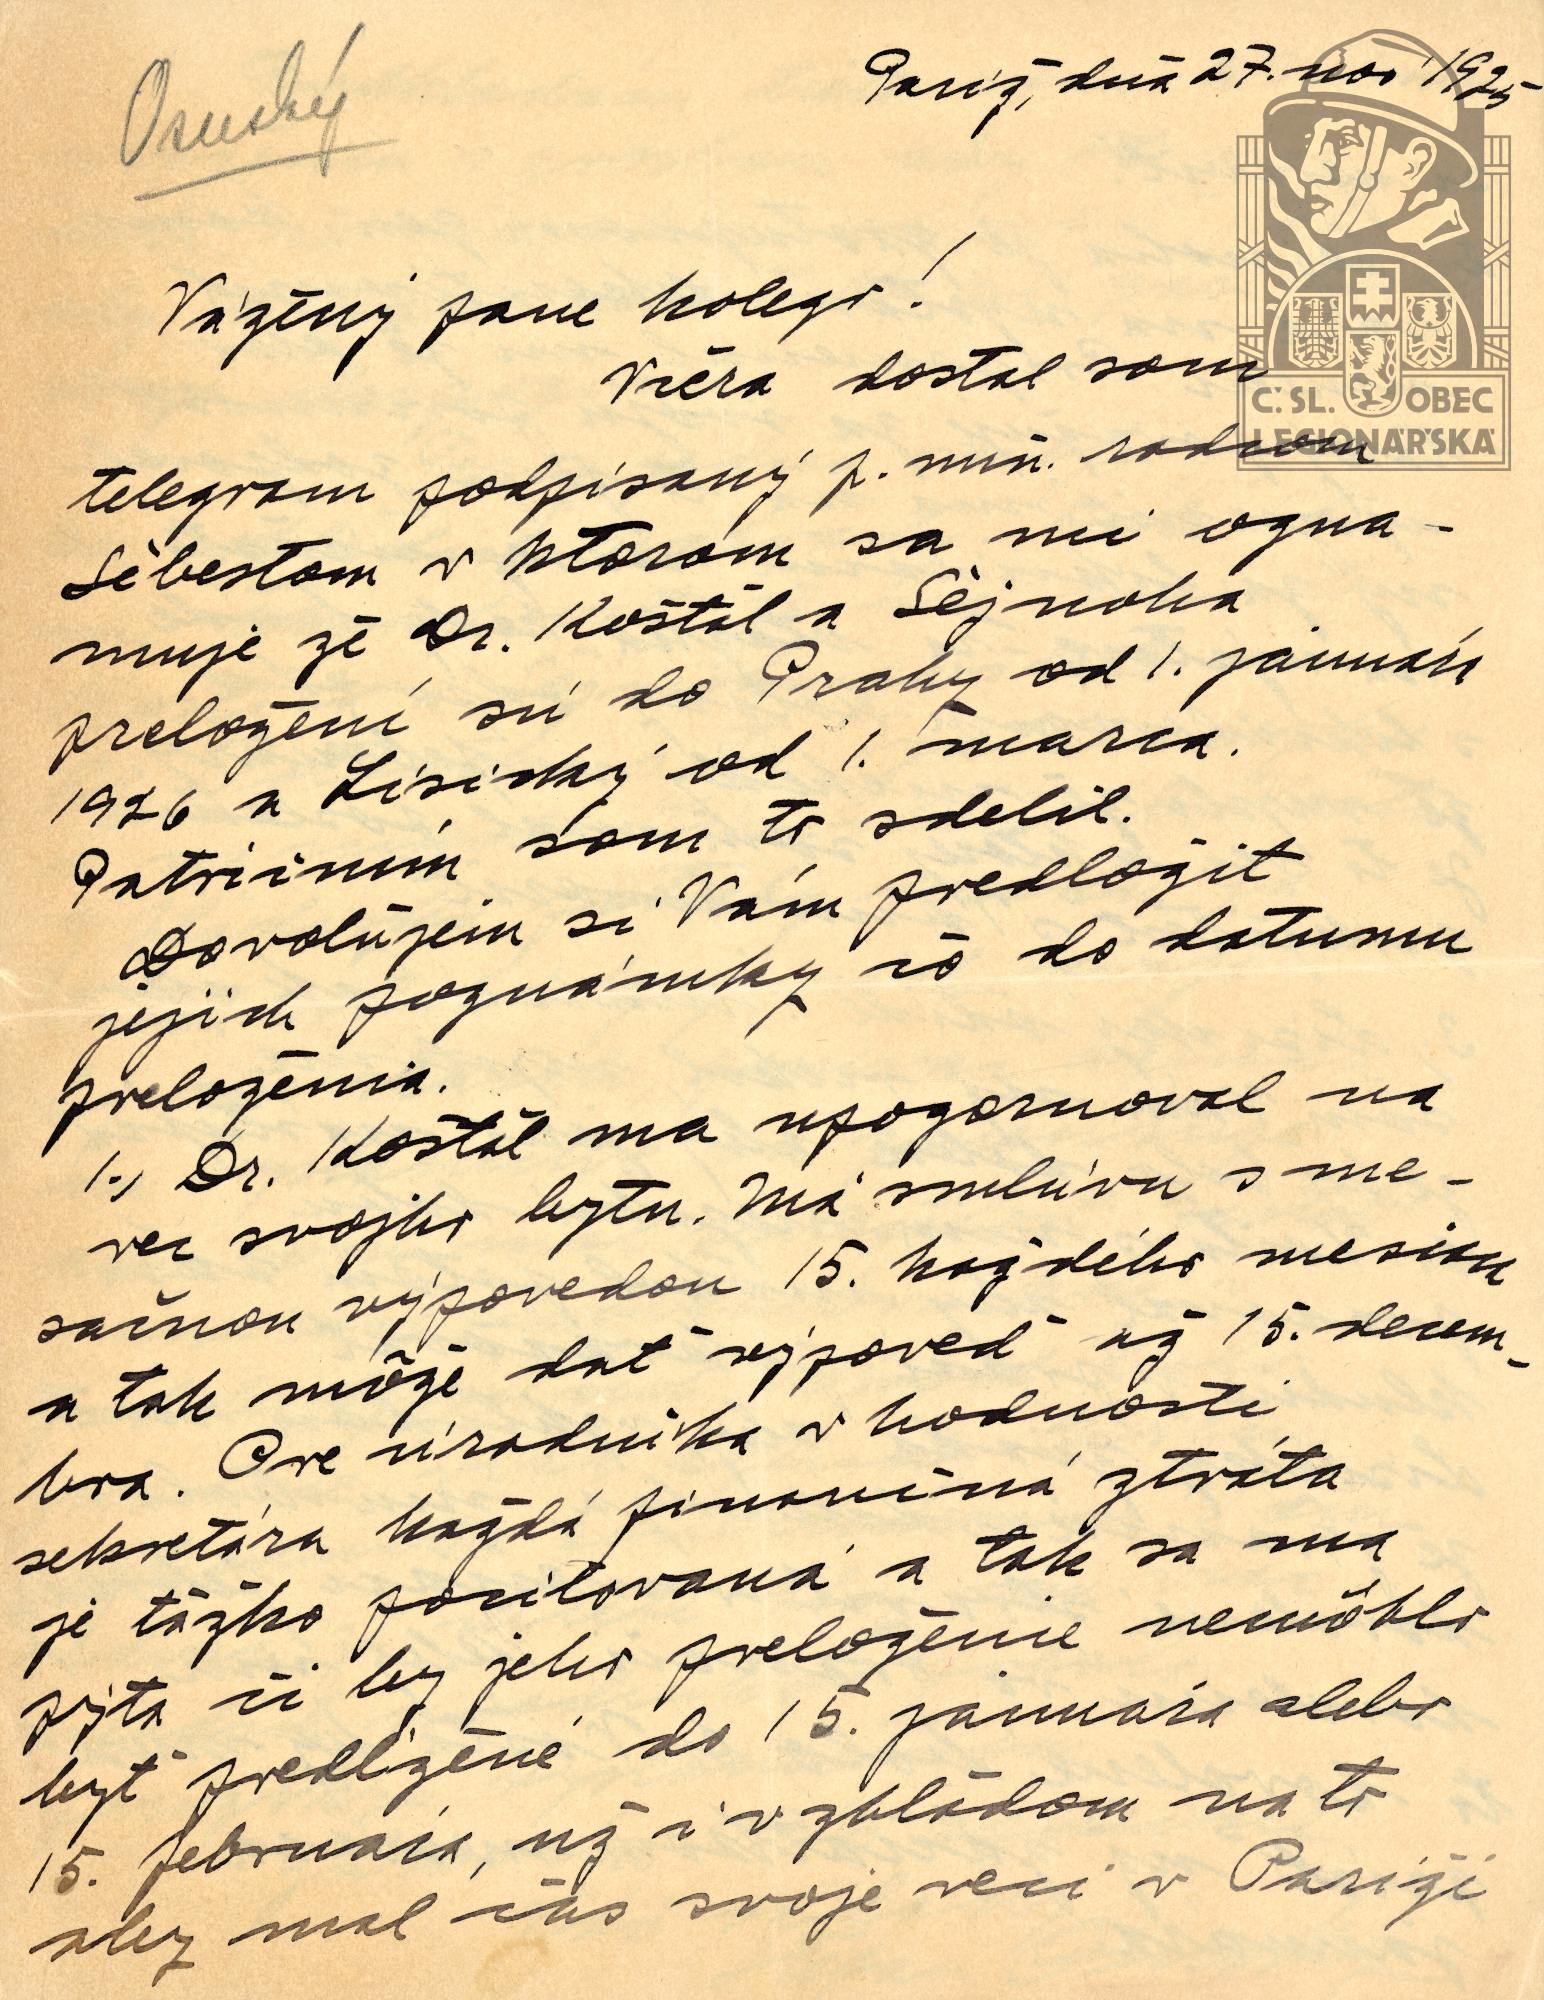 Osuský
Pariž, dňa 27. nov 1925
Č. SL. OBEC
LEGIONÁŘSKÁ
Vážený pane kolego!
Včera dostal som
telegram podpísaný p. min. radcom
Šebestom v ktorom sa mi ozna-
muje že Dr. Koštál a Šejnoha
preložení sú do Prahy od 1. januára
1926 a Lisický od 1. marca.
Patričným som to sdelil.
Dovolujem si Vám predložit
jejich poznámky čo do datumu
preloženia.
1., Dr. Koštál ma upozornoval na
vec svojho bytu. Má smlúvu s me-
sačnou výpovedou 15. každého mesiacu
a tak môže dať výpoveď až 15. decem-
bra. Pre úradníka v hodnosti
sekretára každá finančná ztráta
je tažko pocitovaná a tak sa ma
pýta či by jeho preloženie nemôhlo
byť predlžené do 15. januára alebo
15. februára, už i v zhladom na to
aby mal čas svoje veci v Pariži